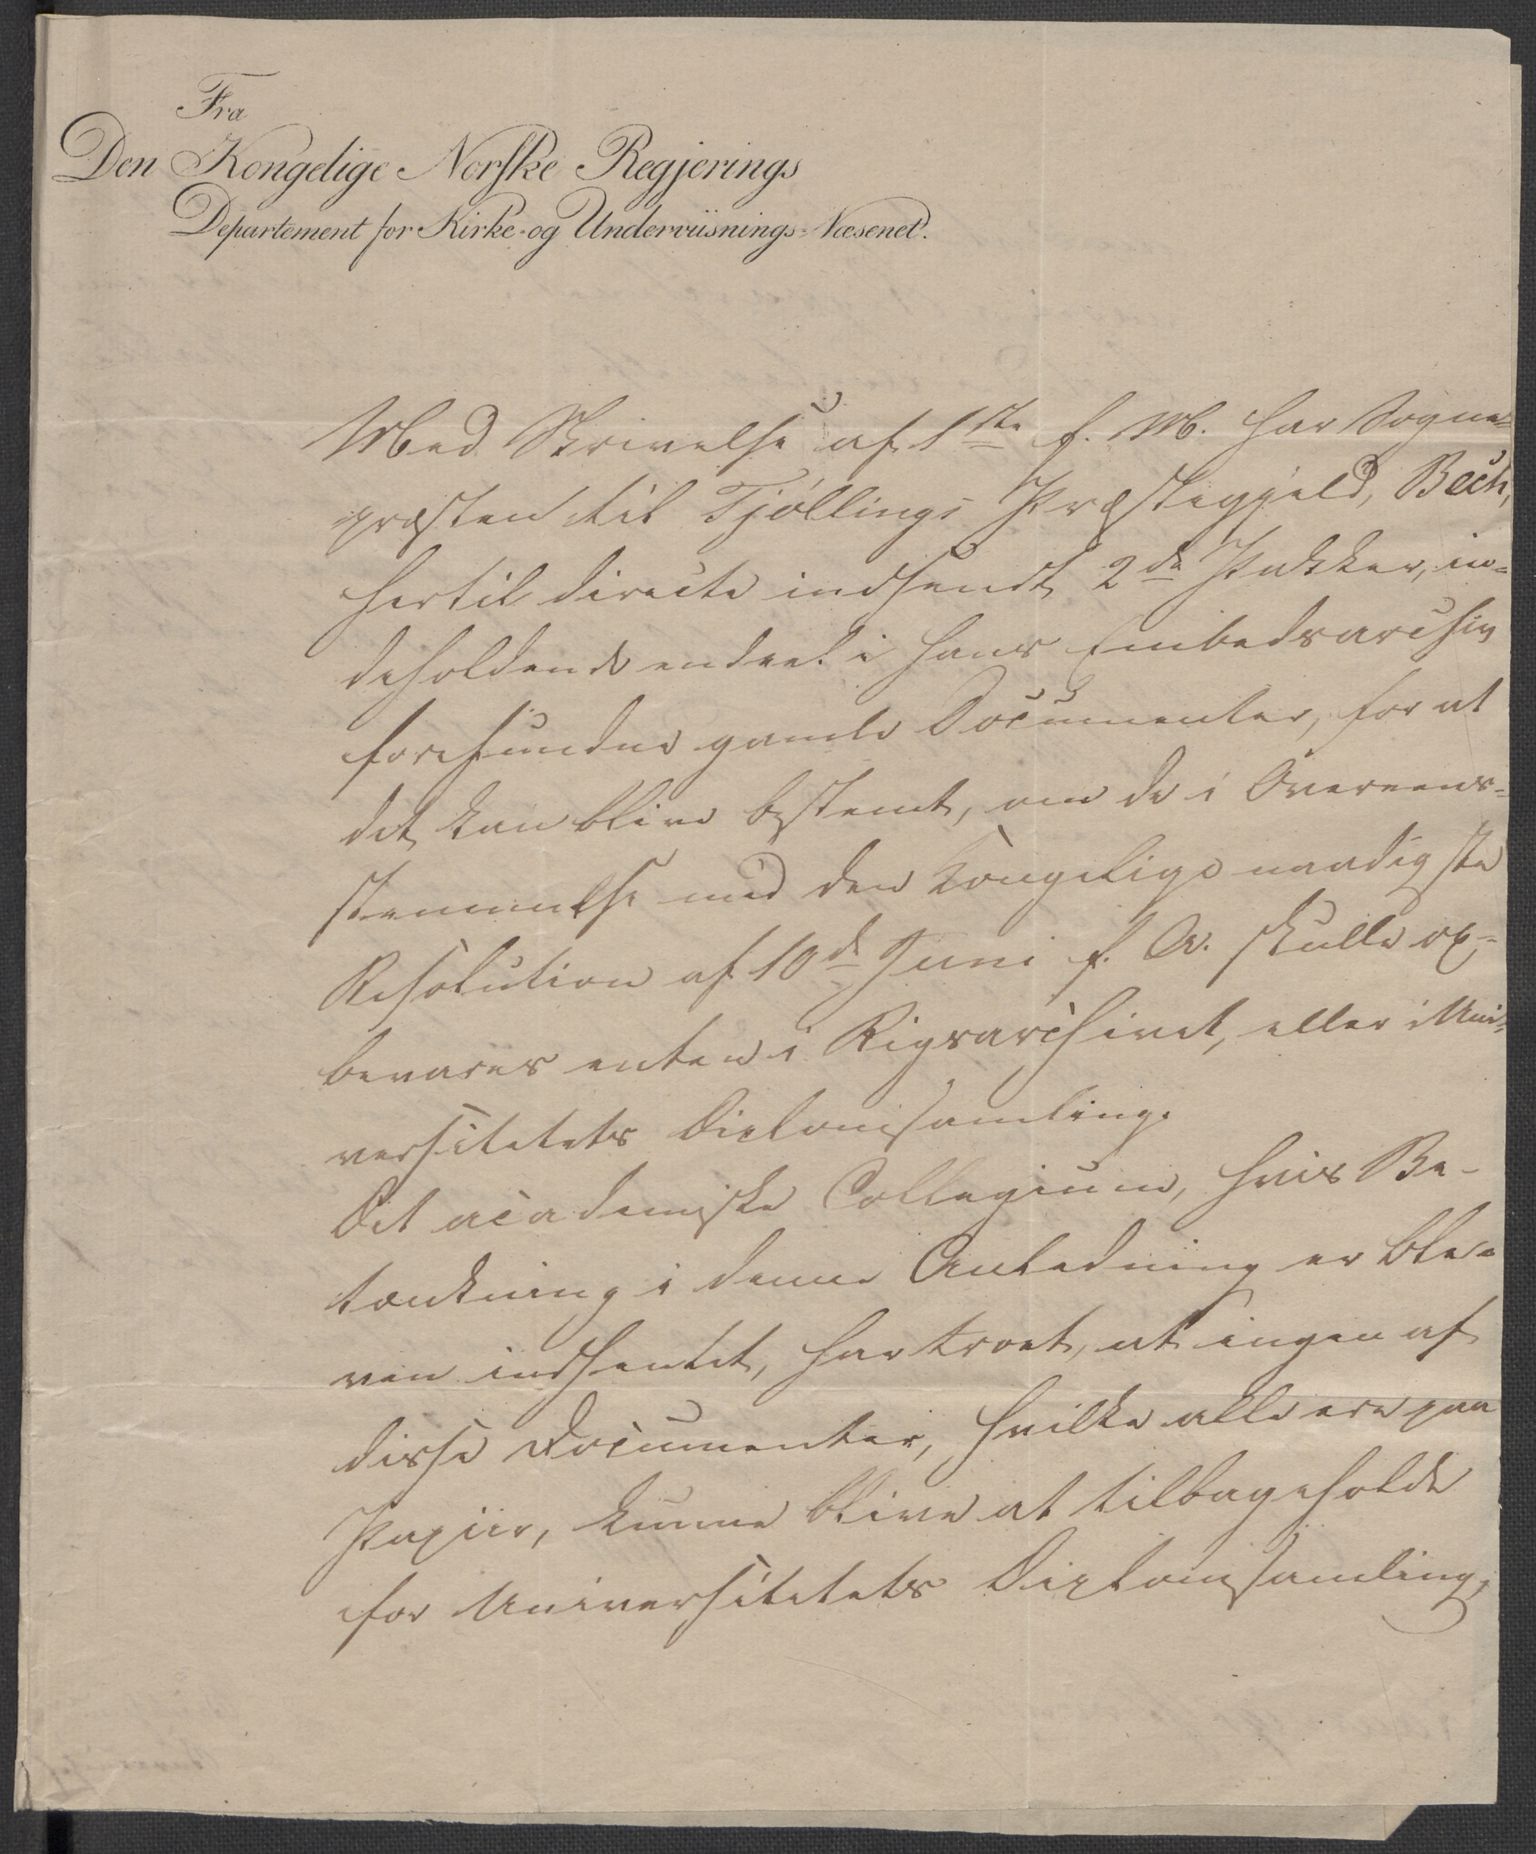 Fra
Den Kongelige Norske Regjerings
Departement for Kirke- og Underviisnings-Væsenet.
Med Skrivelse af 1ste f. M. har Sogne-
præsten til Tjöllings Præstegjeld, Bech,
hertil directe indsendt 2de Pakker, in-
deholdende endeel i hans Embedsarchiv
forefundne gamle Documenter, for at
det kan blive bestemt, om de i Overeens-
stemmelse med den Kongelige naadigste
Resolution af 10de Juni f. A. skulle op-
bevares enten i Rigsarchivet, eller i Uni-
versitetets Diplomsamling.
Det academiske Collegium, hvis Be-
tænkning i denne Anledning er ble-
ven indhentet, har troet, at ingen af
disse Documenter, hvilke alle ere paa
Papiir, kunne blive at tilbageholde
for Universitetets Diplomsamling,